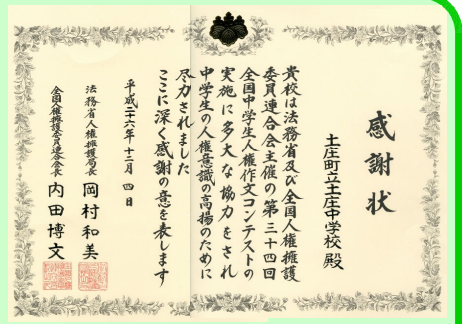 感謝状
土庄町立土庄中学校 殿
貴校は法務省及び全国人権擁護
委員連合会主催の第三十四回
全国中学生人権作文コンテストの
実施に多大な協力をされ
中学生の人権意識の高揚のために
尽力されました
ここに深く感謝の意を表します
平成二十六年十二月 四日
法務省人権擁護局長 岡村和美
全国人権擁護委員連合会長 内田博文